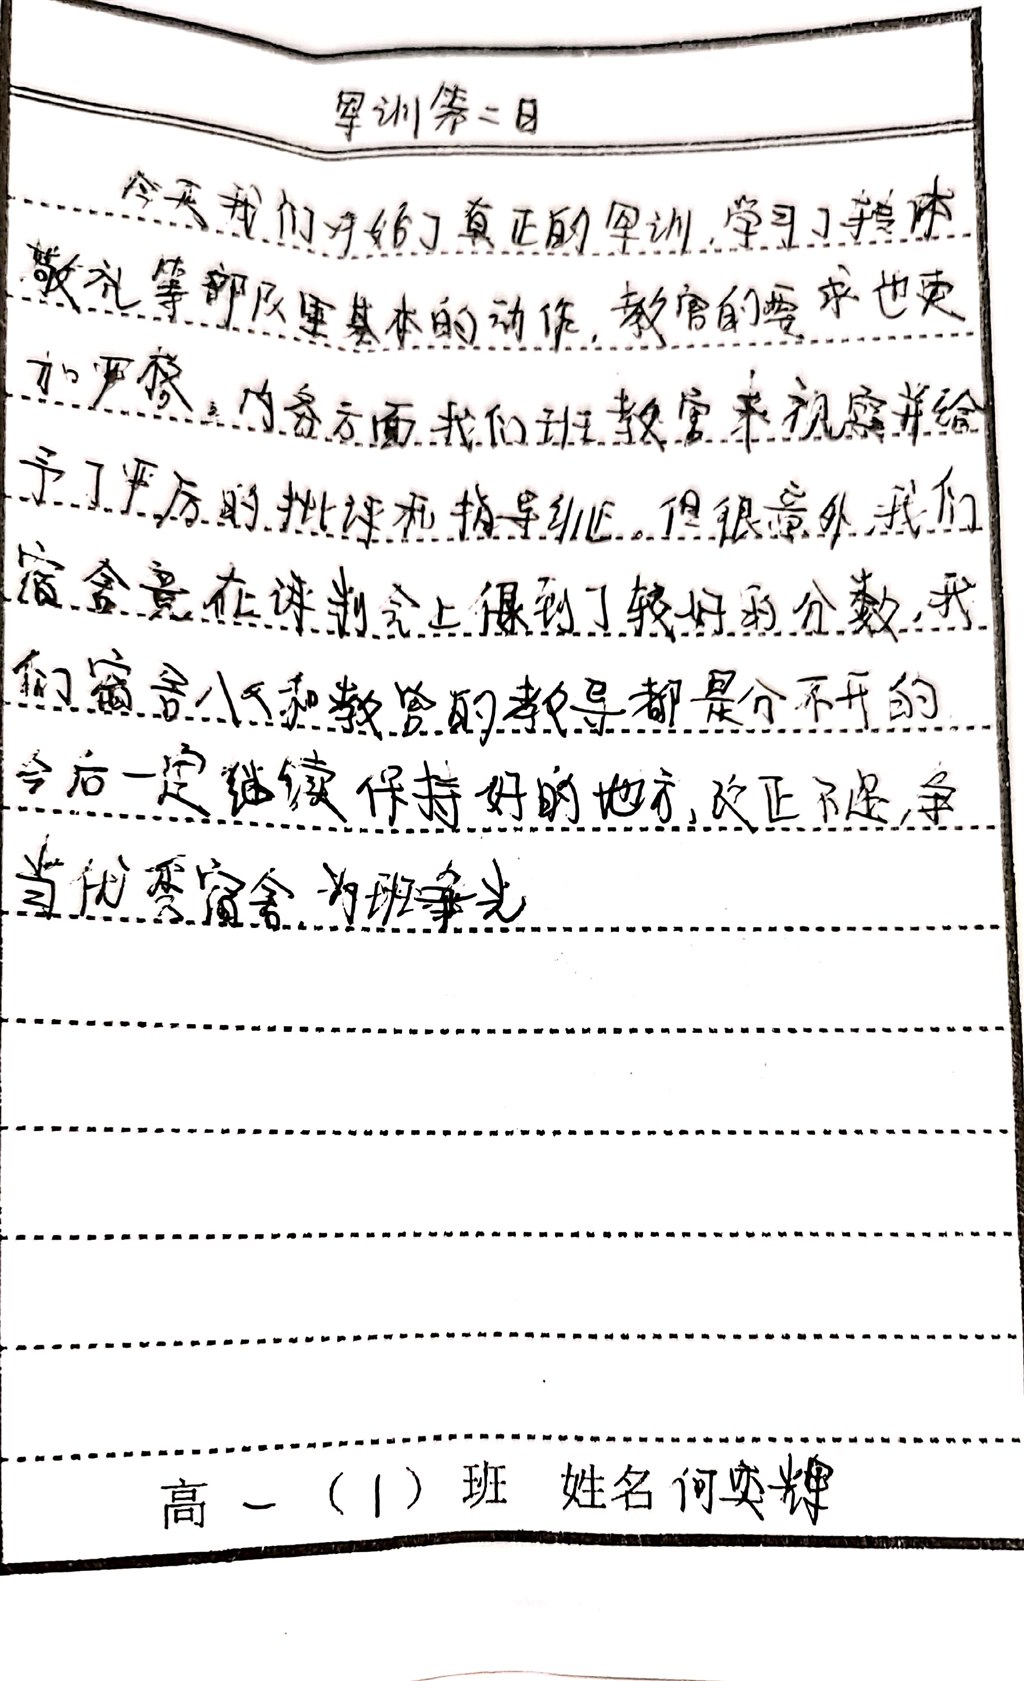 军训第二日
今天我们开始了真正的军训,学习了转体
敬礼等部队里基本的动作,教官的要求也更
加严格。内务方面我们班教官来视察并给
予了严厉的批评和指导纠正。但很意外,我们
宿舍竟在评判会上得到了较好的分数,我
们宿舍八人和教官的教导都是分不开的
今后一定继续保持好的地方,改正不足,争
当优秀宿舍,为班争光
高一(1)班 姓名何奕辉